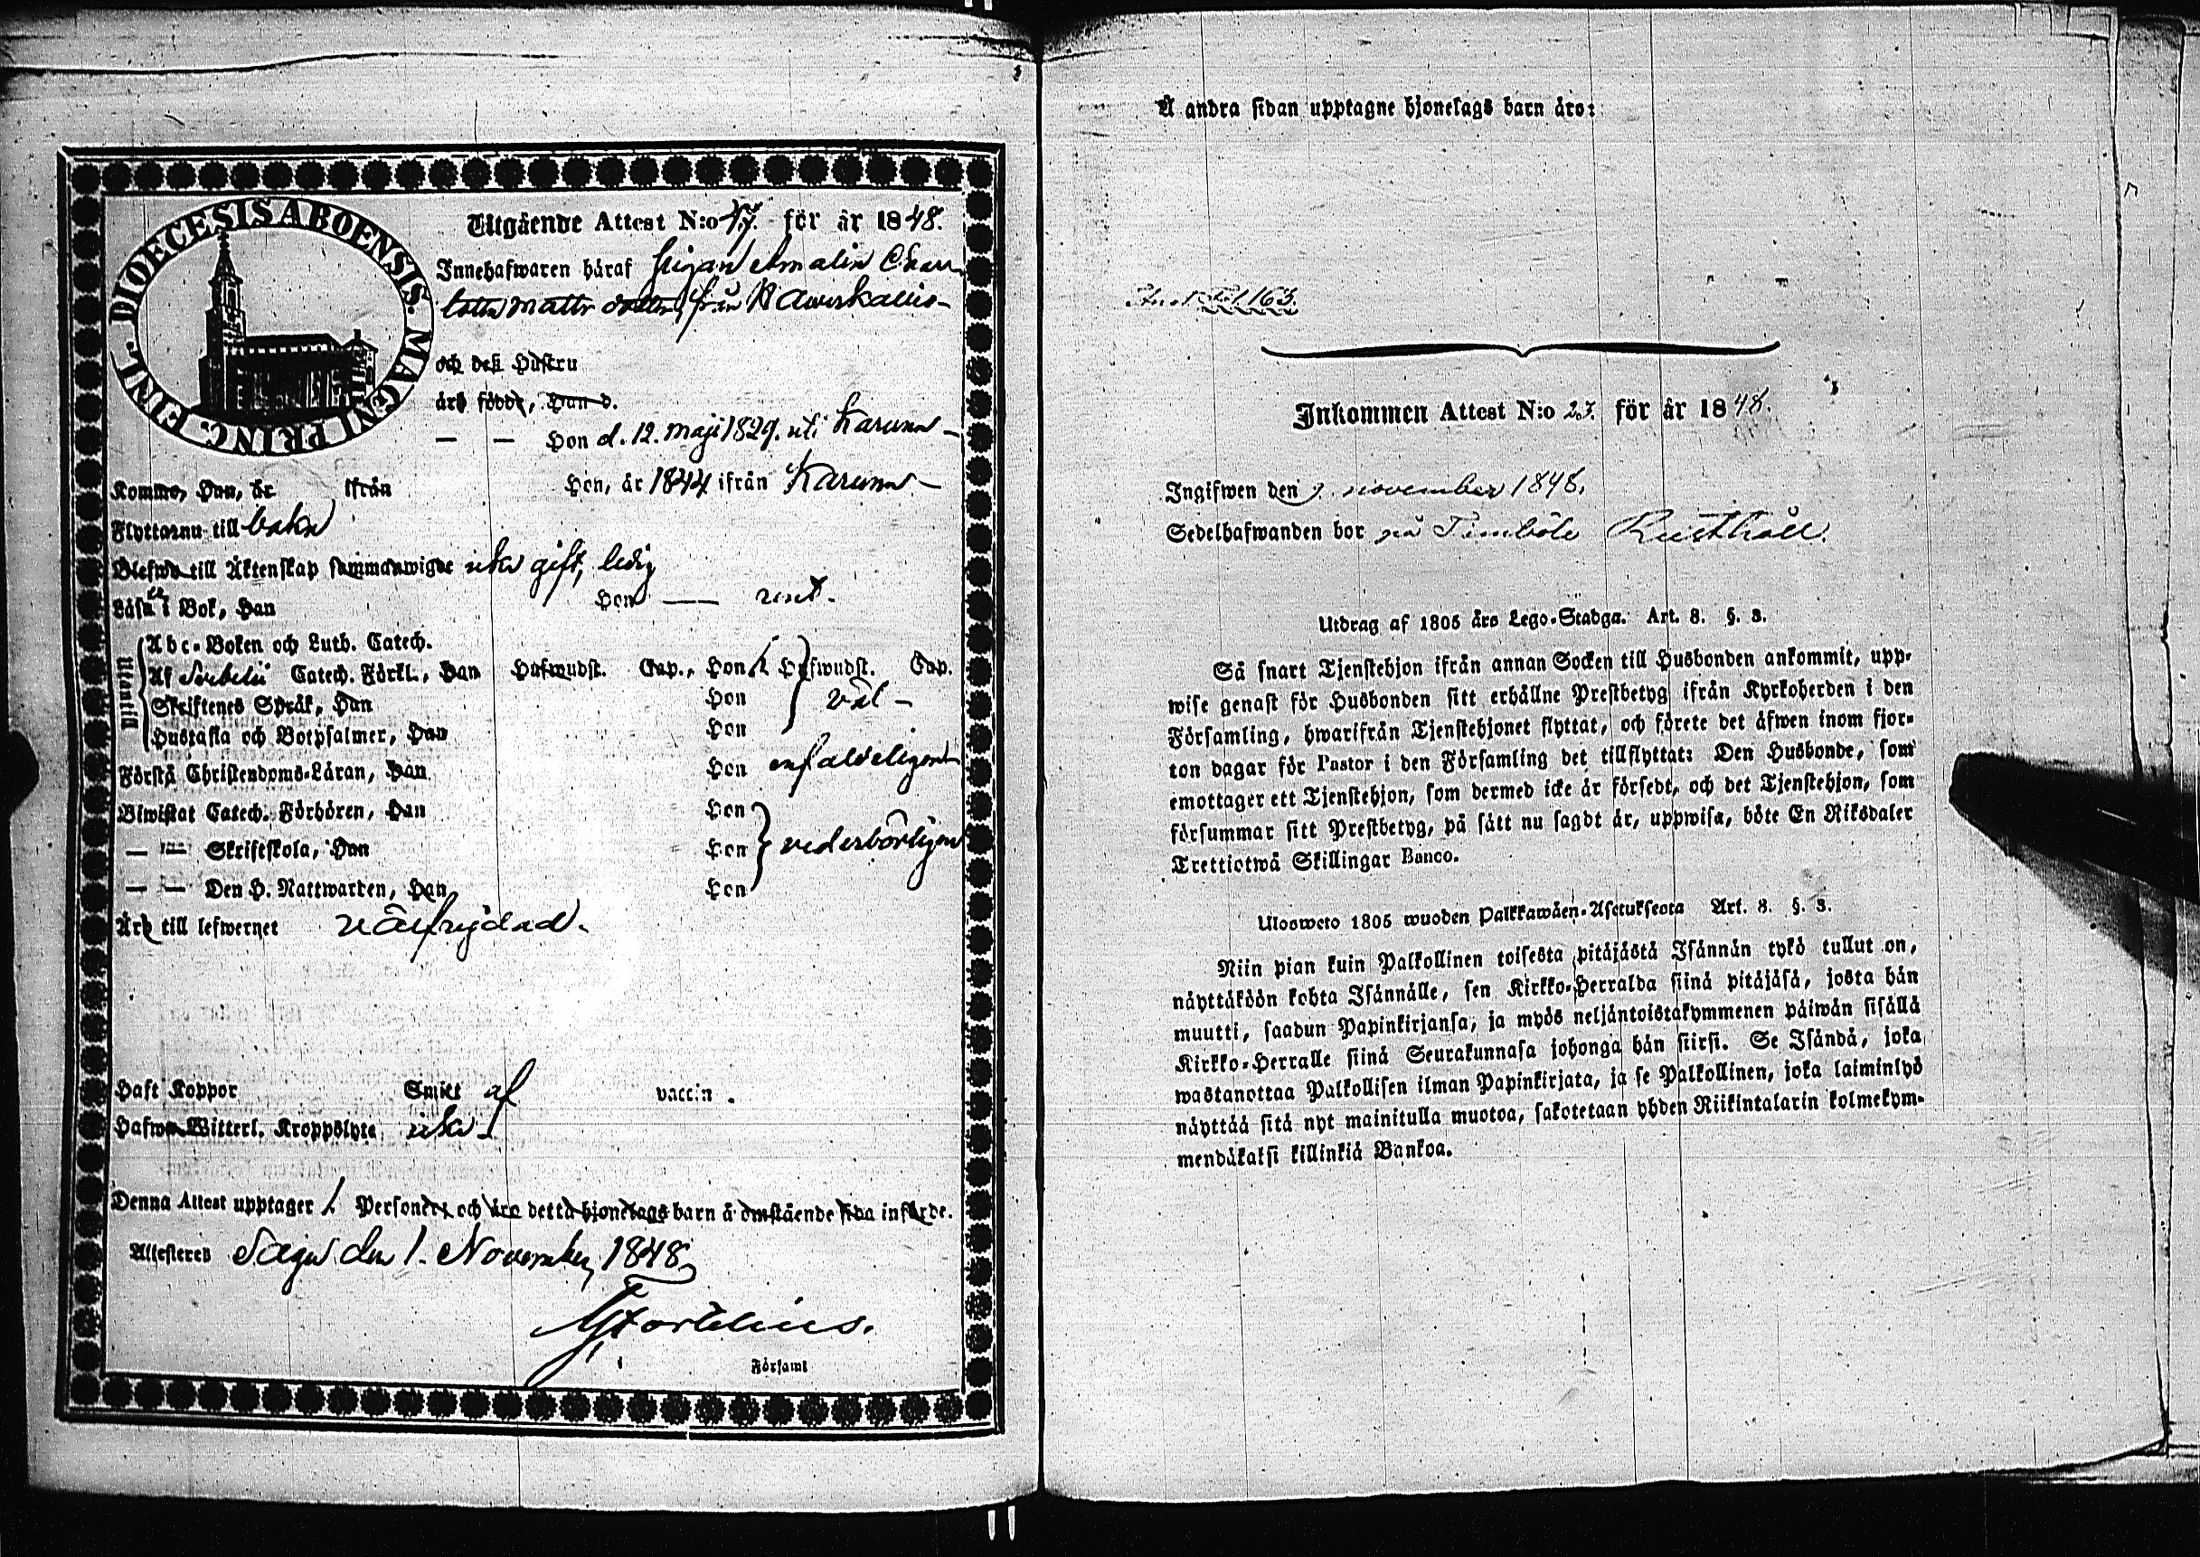 DIOECESIS ABOENSIS. MAGNI PRINC. FINL.
Utgående Attest N:o 47. för år 1848.
Innehafwaren håraf Pigan Amalia Char-
lotta Matts dotter från
och deß Hustru
åro födde, Han d.
— — Hon d. 12. Maji 1829. uti Karuna
Kommo, Han, år ifrån Hon, år 1844 ifrån Karuna
Flyttar nu till baka
Blefwo till Äktenskap sammanwigde icke gift, ledig
Läsa i Bok, Han Hon — rent.
Utantill
Abc-Boken och Luth. Catech.
Af Svebelii Catech. Förkl., Han Hufwudst. Cap., Hon Hufwudst. Cap.
Skriftenes Språk, Han Hon väl
Hustafla och Botpsalmer, Han Hon
Förstå Christendoms-Läran, Han Hon enfaldeligen
Biwistat Catech. Förhören, Han Hon
— — Skriftskola, Han Hon vederbörligen
— — Den H. Nattwarden, Han Hon
Äro till lefwernet välfrejdad.
Haft Koppor Smitt af vaccin.
Hafwa Witterl. Kroppslyte icke
Denna Attest upptager 1. Personer, och åro detta hjonelags barn å omstående sida införde.
Attesteras Sagu den 1. November 1848
Församl
Å andra sidan upptagne hjonelags barn åro:
Fol. 163.
Inkommen Attest N:o 23. för år 1848.
Ingifwen den 9. november 1848.
Sedelhafwanden bor på Timböle Rusthåll.
Utdrag af 1805 års Lego-Stadga. Art. 8. §. 3.
Så snart Tjenstehjon ifrån annan Socken till Husbonden ankommit, upp-
wise genast för Husbonden sitt erhållne Prestbetyg ifrån Kyrkoherden i den
Församling, hwarifrån Tjenstehjonet flyttat, och förete det åfwen inom fjor-
ton dagar för Pastor i den Församling det tillflyttat: Den Husbonde, som
emottager ett Tjenstehjon, som dermed icke år försedt, och det Tjenstehjon, som
försummar sitt Prestbetyg, på sått nu sagdt år, uppwisa, böte En Riksdaler
Trettiotwå Skillingar Banco.
Ulosweto 1805 wuoden Palkkawäen-Asetuksesta Art. 8. §. 3.
Niin pian kuin Palkollinen toisesta pitäjästä Isännän tykö tullut on,
näyttäköön kohta Isännälle, sen Kirkko-Herralda siinä pitäjäsä, josta hän
muutti, saadun Papinkirjansa, ja myös neljäntoistakymmenen päiwän sisällä
Kirkko-Herralle siinä Seurakunnasa johonga hän siirsi. Se Isändä, joka
wastanottaa Palkollisen ilman Papinkirjata, ja se Palkollinen, joka laiminlyö
näyttää sitä nyt mainitulla muotoa, sakotetaan yhden Riikintalarin kolmekym-
mendäkaksi killinkiä Bankoa.